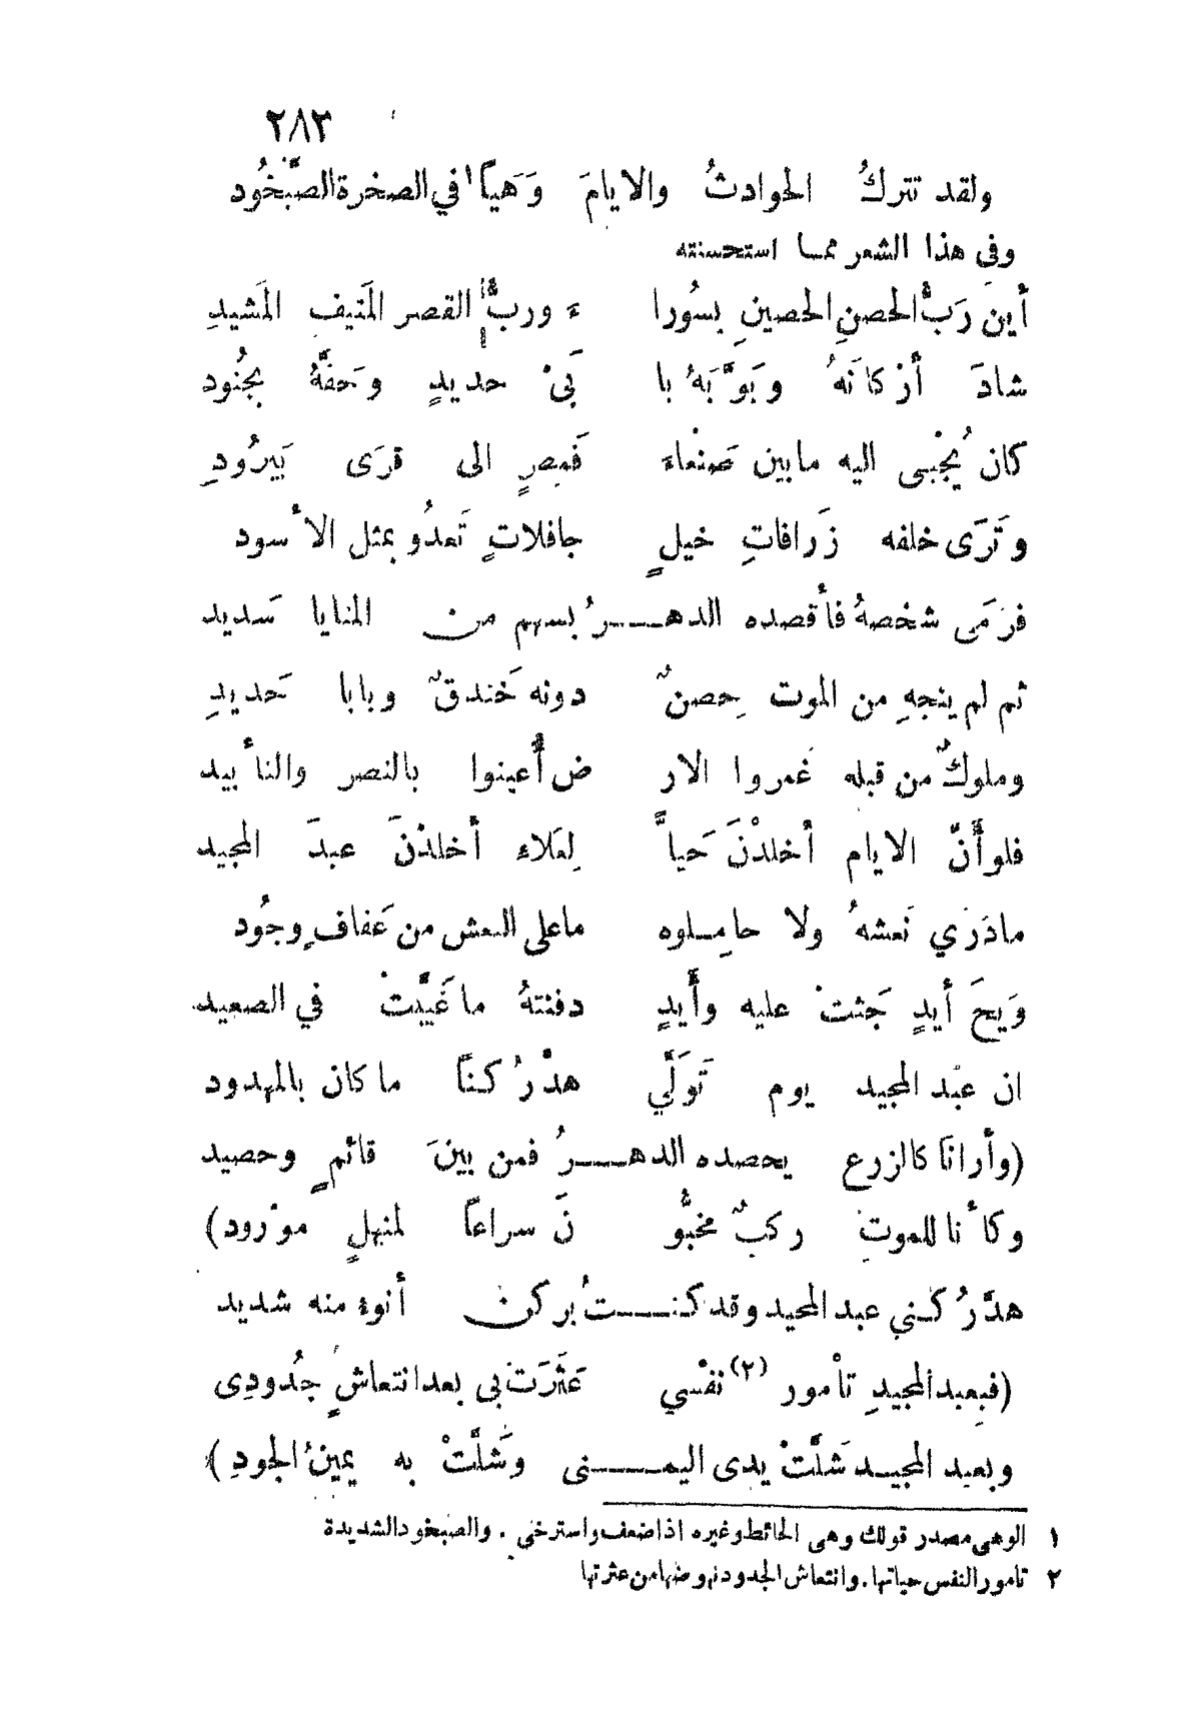 ٢٨٣
ولقد تتركُ الحوادثُ والايامَ وَهَياً١ في الصخرة الصَّبْخُود
وفى هذا الشعر مما استحسنته
أين رَبُّ الحصنِ الحصينِ بسُورا ءَ وربُّ القصر المَنيفِ المَشيدِ
شادَ أرْكانَهُ وبَوَّبَهُ با بَيْ حديدٍ وحَفَّهُ بجُنُود
كان يُجْبى اليه مابين صَنْعاءَ فَمِصرٍ الى قرَى بَيرُودِ
وتَرَى خلفه زَرافاتِ خيلٍ جافلاتٍ تَعدُو بمثل الأسود
فرَمَى شخصهُ فأقصده الدهـــرُ بسهم من المنايا سَديد
ثم لم ينجهِ من الموت حِصنٌ دونه خَندقٌ وبابا حَديدِ
وملوكٌ من قبله عَمروا الار ض أُعينوا بالنصر والتأبيد
فلو أَنَّ الايام أخلدْنَ حَياً لِعَلاء أخلدْنَ عبدَ المجيد
مادَرَي نَعشهُ ولا حامِـلوه ماعلى النعش من عَفافٍ وجُود
وَيحَ أيدٍ حَثتْ عليه وأَيدٍ دفنتهُ ما غَيَّبتْ في الصعيد
ان عبْد المجيد يوم تَوَلَّي هدَّرُكناً ماكان بالمهدود
(وأرانا كالزرع يحصده الدهـــرُ فمن بينَ قائمٍ وحصيد
وكأنا للموتِ ركبٌ مخبُّو نَ سراعاً لمنهلٍ موْرود)
هدَّرُكني عبد المجيد وقد كنـــتُ بركن أنوءُ منه شديد
(فبعبد المجيدِ تأمور (٢) نفسْي عَثَرَت بى بعد انتعاشٍ جُدودِى
وبعبد المجيـد شَلَّتْ يدى اليمـــنى وشَلَّتْ به يمينُ الجودِ)
١ الوهى مصدر قولك وهى الحائط وغيره اذا ضعف واسترخى . والصبخود الشديدة
٢ تامور النفس حياتها. وانتعاش الجدود نهوضها من عثرتها